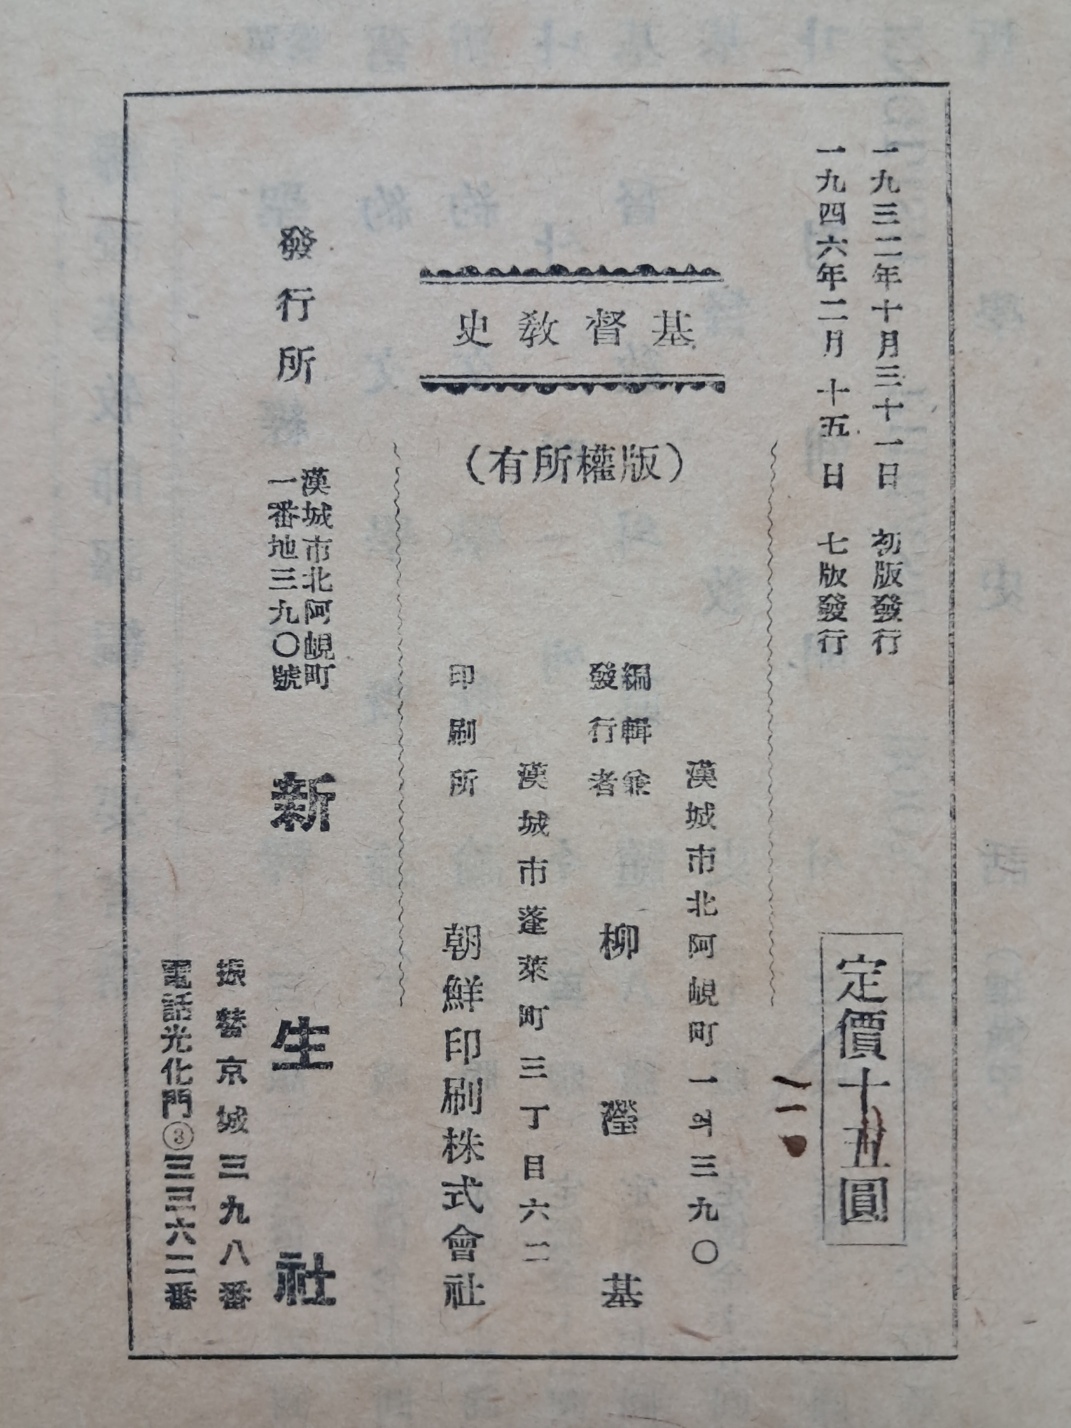 一九三二年十月三十一日 初版發行
一九四六年二月 十五 日 七版發行
定價十五圓
基督敎史
(版權所有)
漢城市北阿峴町一의三九〇
編輯兼
發行者 柳瀅基
漢城市蓬萊町三丁目六二
印刷所 朝鮮印刷株式會社
發行所
漢城市北阿峴町
一番地三九〇號
新生社
振替京城三九八番
電話光化門③三三六二番